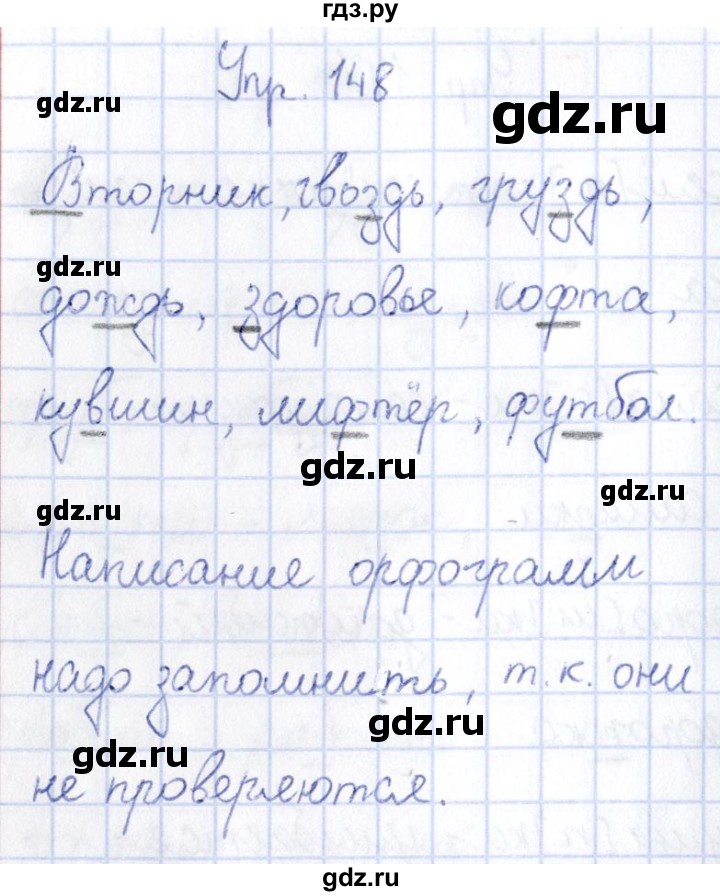 гдз.ру
Упр. 148
gdz.ru
gdz.ru
Вторник, гвоздь, груздь,
gdz.ru
дождь, здоровье, кофта,
кувшин, лифтёр, футбол.
gdz.ru
gdz.ru
gdz.ru
Написание орфограмм
надо запомнить, т.к. они
gdz.ru
gdz.ru
не проверяются.
gdz.ru